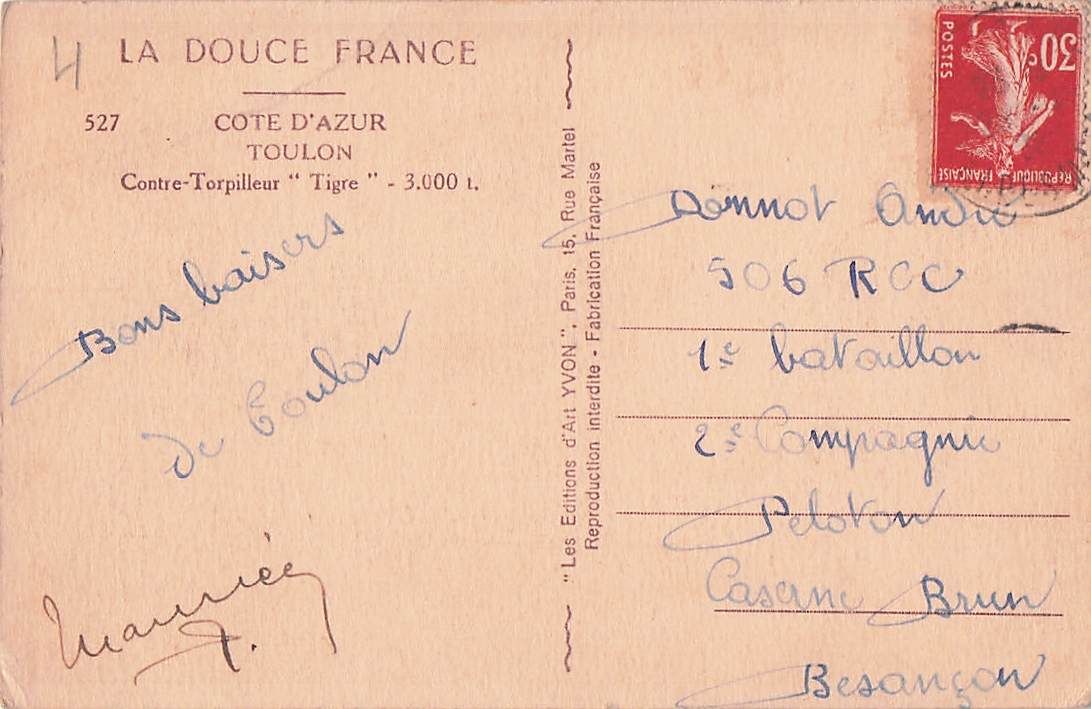 4
LA DOUCE FRANCE
527 COTE D'AZUR
TOULON
Contre-Torpilleur " Tigre " - 3.000 t.
Bons baisers
de Toulon
Maurice
"Les Editions d'Art YVON", Paris, 15, Rue Martel
Reproduction interdite - Fabrication Française
30c
POSTES
REPUBLIQUE FRANÇAISE
Donnot André
506 RCC
1e bataillon
2e Compagnie
Peloton
Caserne Brun
Besançon